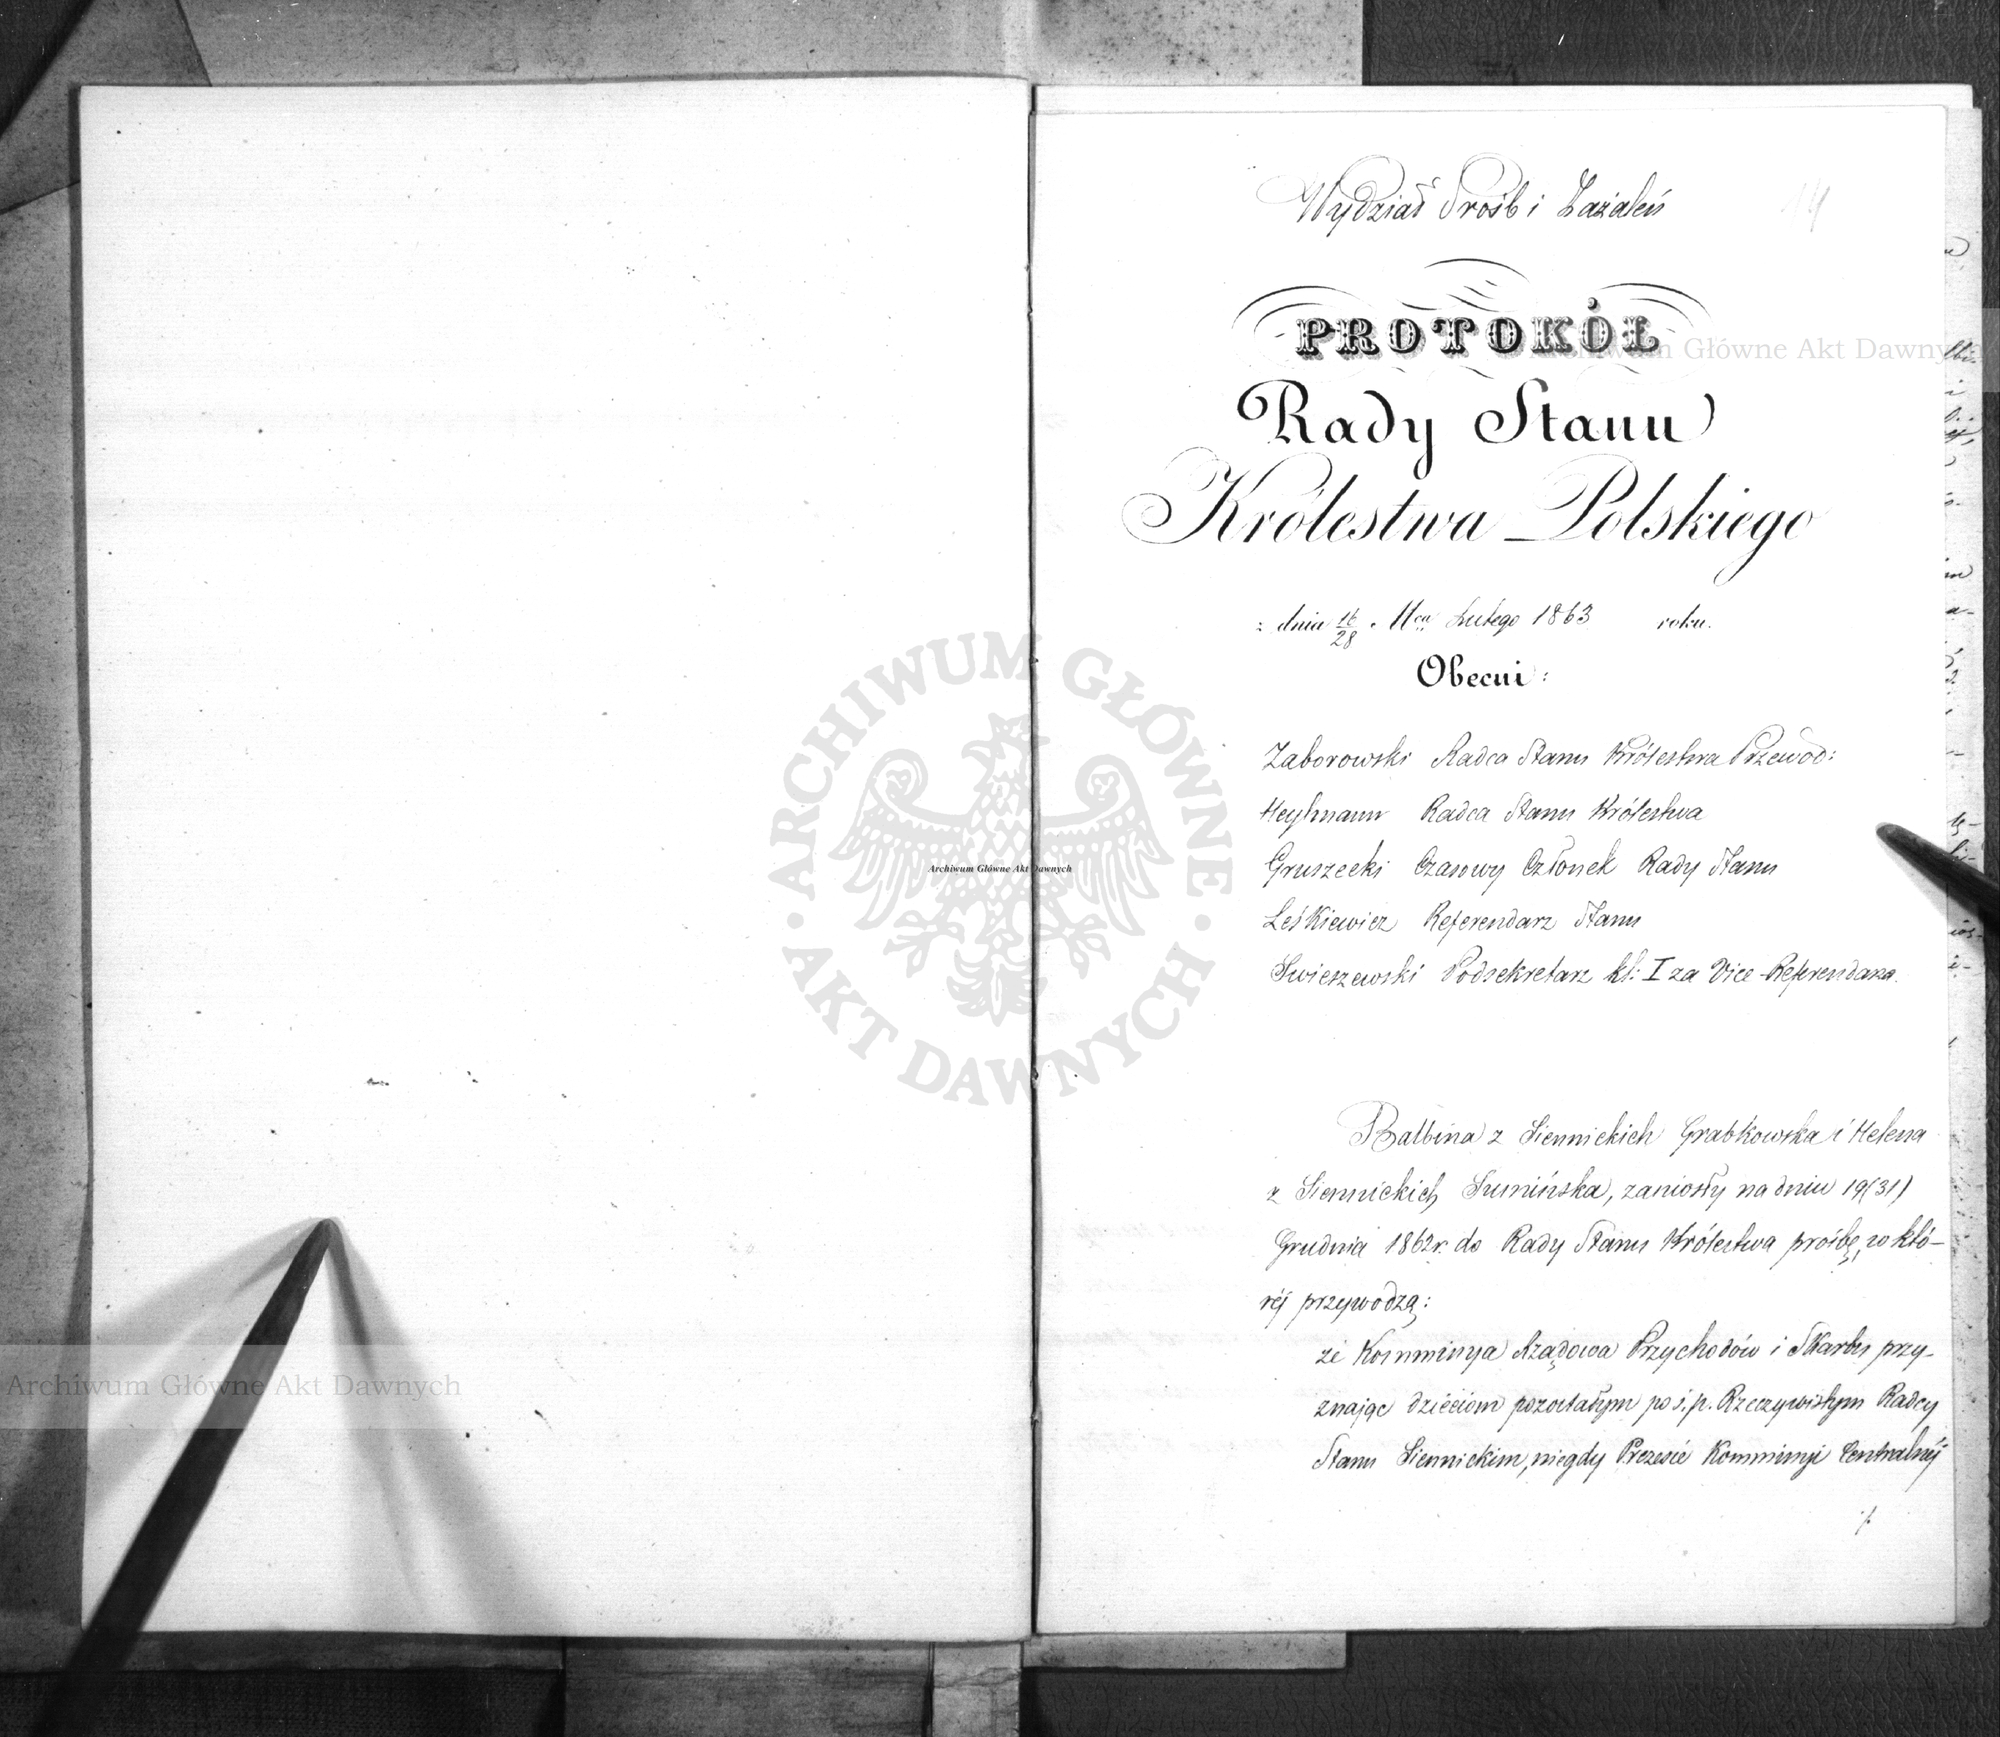 Wydział Prośb i Zażaleń
14
PROTOKÓŁ
Archiwum Główne Akt Dawnych
Rady Stanu
Królestwa Polskiego
z dnia 16/28 Mca Lutego 1863 roku.
Obecni:
Zaborowski Radca Stanu Królestwa Przewod:
Heylmann Radca Stanu Królestwa
Gruszecki Czasowy Członek Rady Stanu
Leśkiewicz Referendarz Stanu
Swieszewski Podsekretarz kl: I za Vice-Referendarza.
ARCHIWUM GŁÓWNE · AKT DAWNYCH ·
Archiwum Główne Akt Dawnych
Balbina z Siennickich Grabkowska i Helena
z Siennickich Sumińska, zaniosły na dniu 19(31)
Grudnia 1862 r. do Rady Stanu Królestwa prośbę, w któ-
réj przywodzą:
że Kommissya Rządowa Przychodów i Skarbu przy-
znając dzieciom pozostałym po ś.p. Rzeczywistym Radcy
Stanu Siennickim, niegdy Prezesie Kommissyi Centralnéj
·/.
Archiwum Główne Akt Dawnych